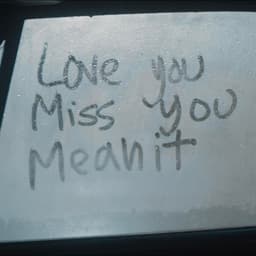 Love you
Miss you
Mean it